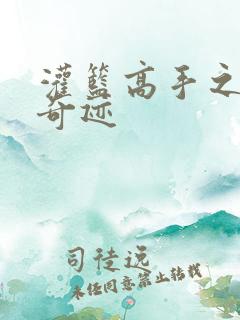 灌籃高手之
奇迹
司徒远
未经同意禁止转载